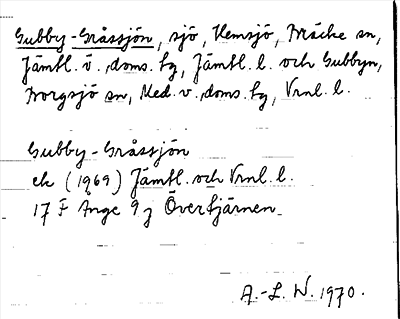 Gubby-Gråssjön, sjö, Hemsjö, Bräcke sn,
Jämtl. ö. doms. fg, Jämtl. l. och Gubbyn,
Borgsjö sn, Med. v. doms. fg, Vrnl. l.
Gubby-Gråssjön
ek (1969) Jämtl. och Vrnl. l.
17 F Ånge 9 j Övertjärnen
A.-L. W. 1970.